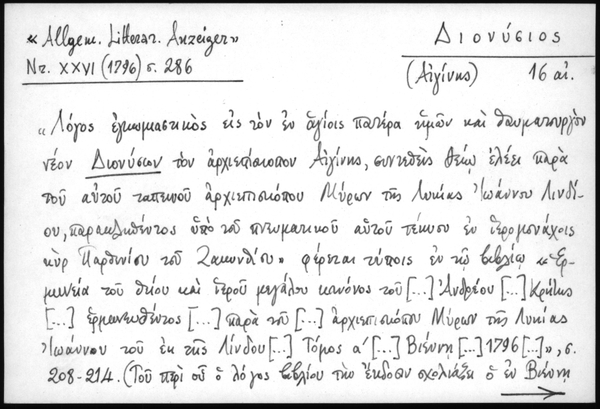 « Allgem. Litterar. Anzeiger»
Nr. XXVI (1796) σ. 286
Διονύσιος
(Αἰγίνης) 16 αἰ.
«Λόγος ἐγκωμιαστικὸς εἰς τὸν ἐν ἁγίοις πατέρα ἡμῶν καὶ θαυματουργὸν
νέον Διονύσιον τὸν ἀρχιεπίσκοπον Αἰγίνης, συντεθεὶς θείῳ ἐλέει παρὰ
τοῦ αὐτοῦ ταπεινοῦ ἀρχιεπισκόπου Μύρων τῆς Λυκίας Ἰωάννου Λινδί-
ου, παρακληθέντος ὑπὸ τοῦ πνευματικοῦ αὐτοῦ τέκνου ἐν ἱερομονάχοις
κὺρ Παρθενίου τοῦ Ζακυνθίου» φέρεται τύποις ἐν τῷ βιβλίῳ «Ἑρ-
μηνεία τοῦ θείου καὶ ἱεροῦ μεγάλου κανόνος τοῦ [...] Ἀνδρέου [...] Κρήτης
[...] ἑρμηνευθέντος [...] παρὰ τοῦ [...] ἀρχιεπισκόπου Μύρων τῆς Λυκίας
Ἰωάννου τοῦ ἐκ τῆς Λίνδου [...] Τόμος α' [...] Βιέννη [...] 1796 [...]», σ.
208-214. (Τοῦ περὶ οὗ ὁ λόγος βιβλίου τὴν ἔκδοσιν σχολιάζει ὁ ἐν Βιέννῃ